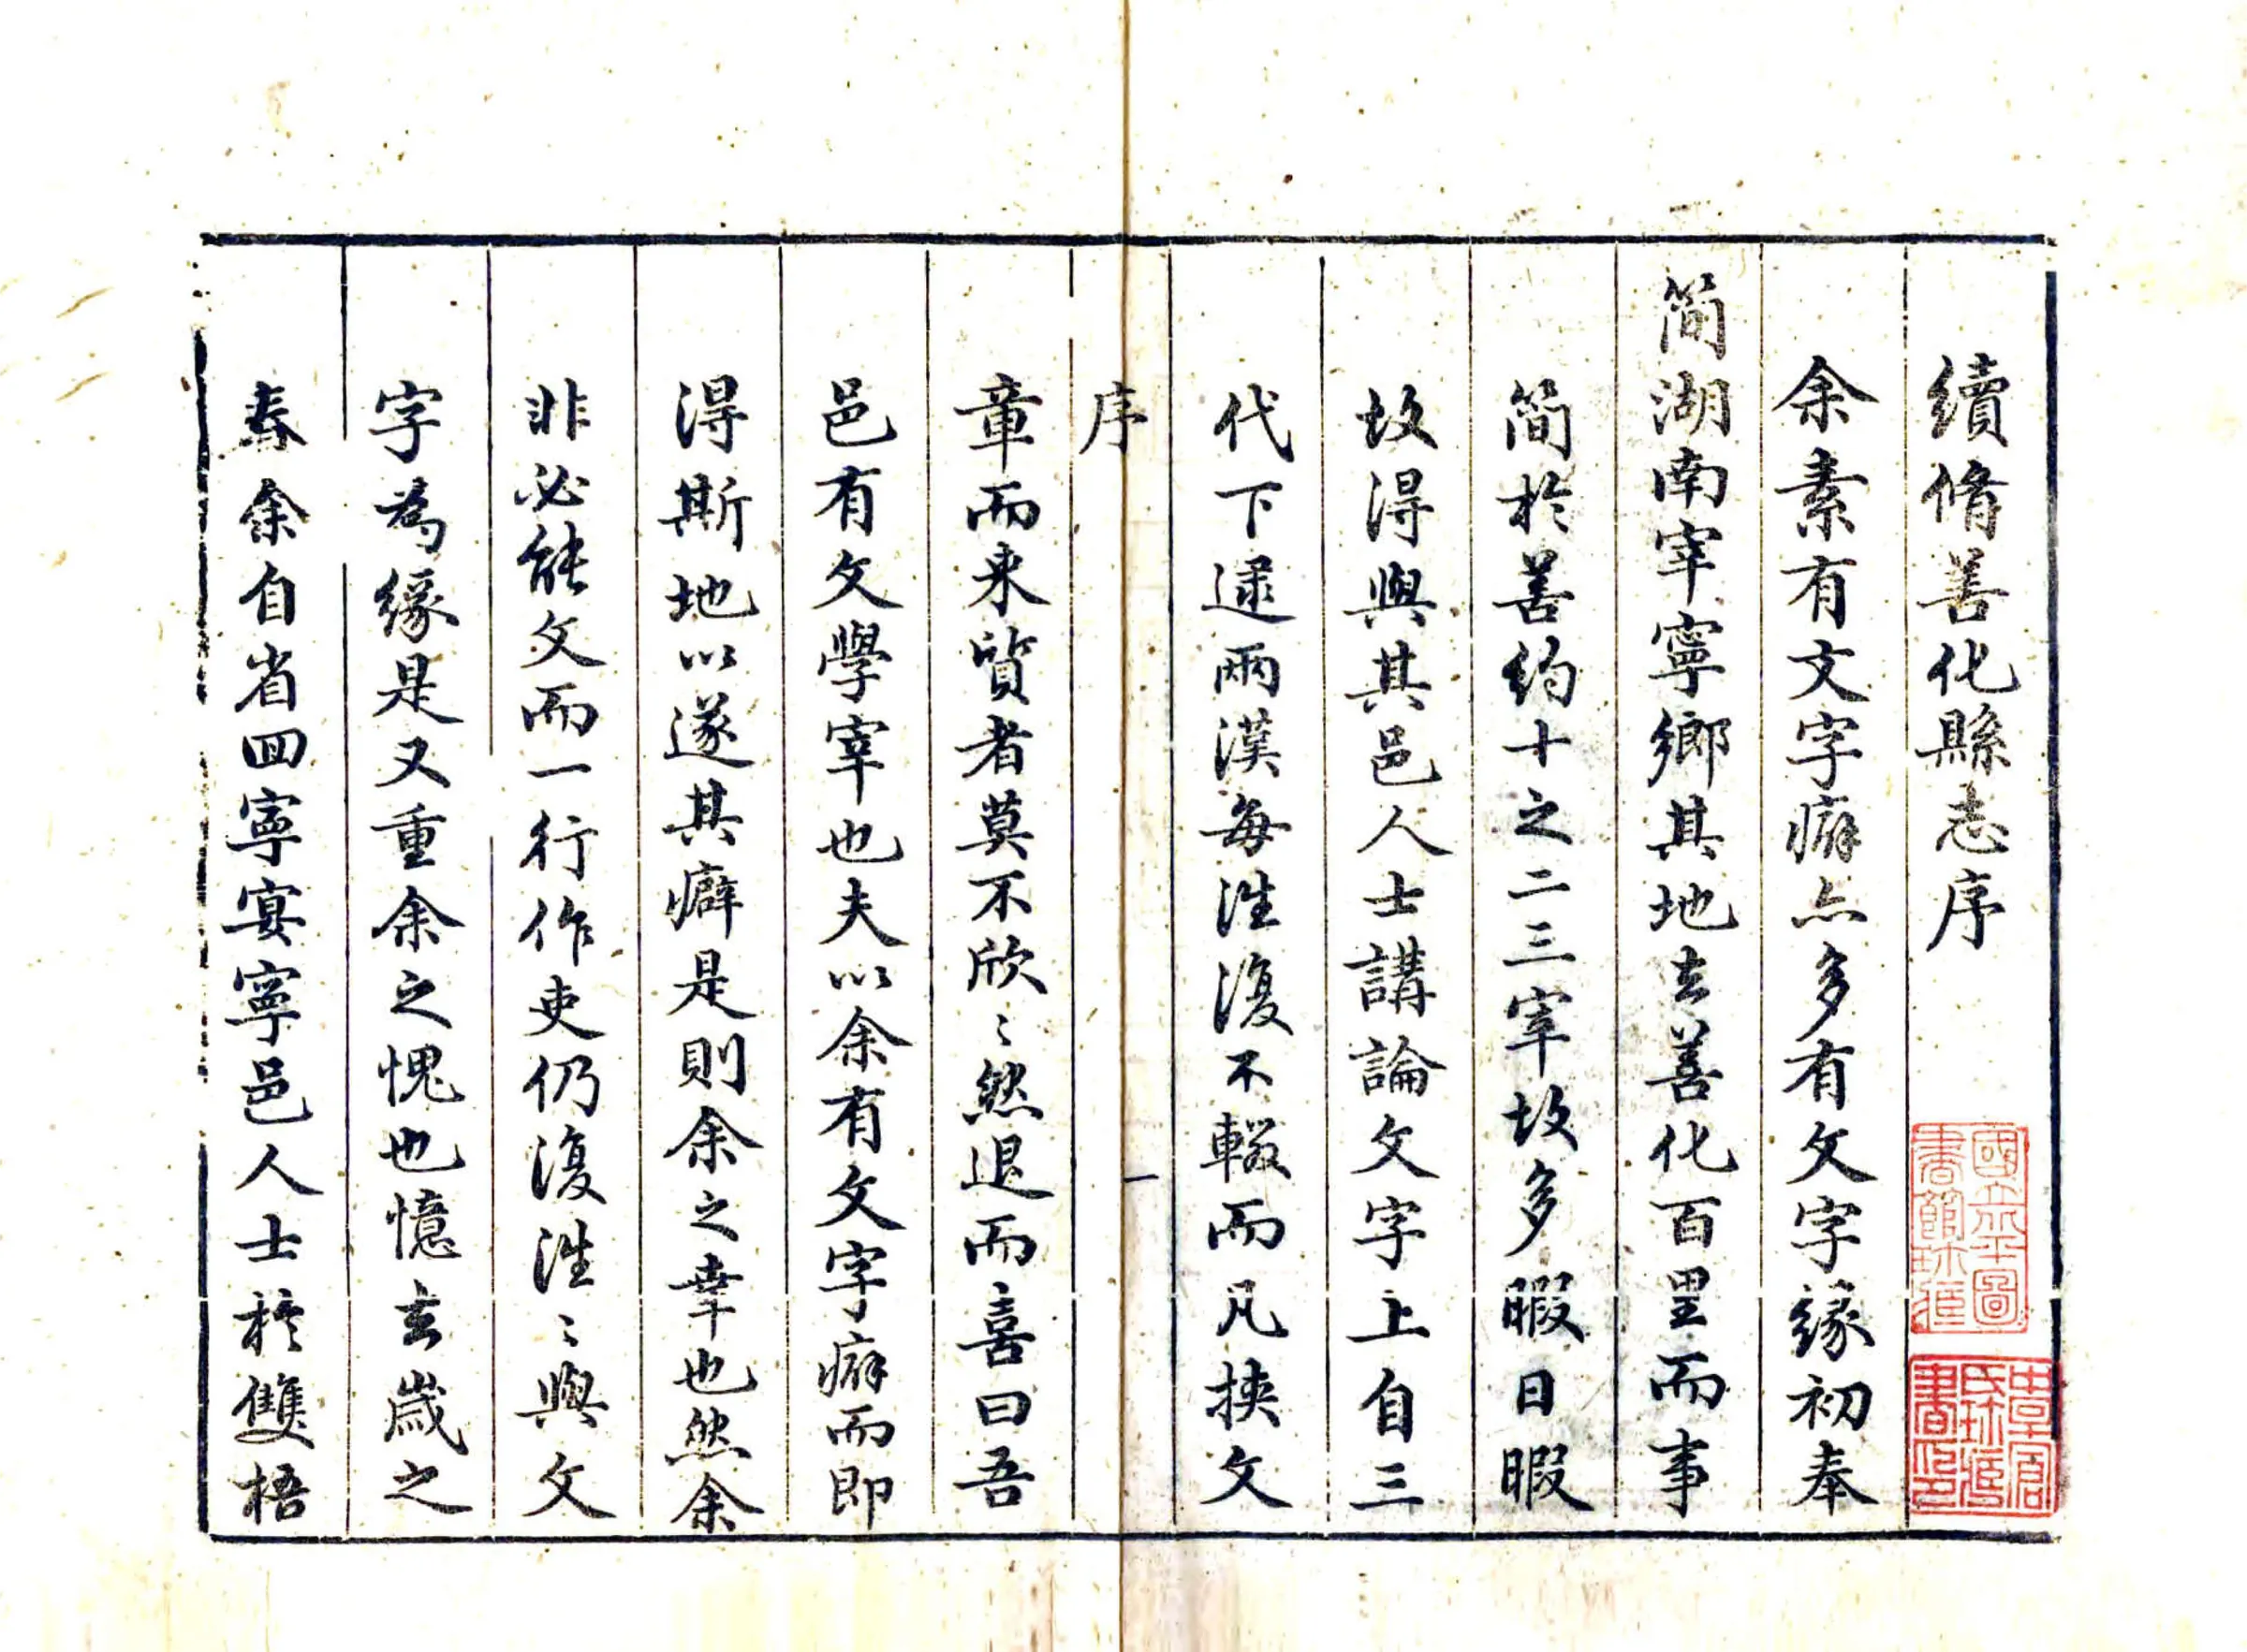 續脩善化縣志序
余素有文字癖亦多有文字緣初奉
簡湖南宰寧鄉其地去善化百里而事
簡於善約十之二三宰故多暇日暇
故得與其邑人士講論文字上自三
代下逮兩漢每往復不輟而凡挾文
序
一
章而来質者莫不欣〻然退而喜曰吾
邑有文學宰也夫以余有文字癖而即
得斯地以遂其癖是則余之幸也然余
非必能文而一行作吏仍復往〻與文
字為緣是又重余之愧也憶去歲之
春余自省回寧宴寧邑人士於雙梧
國立北平圖
書館珎藏